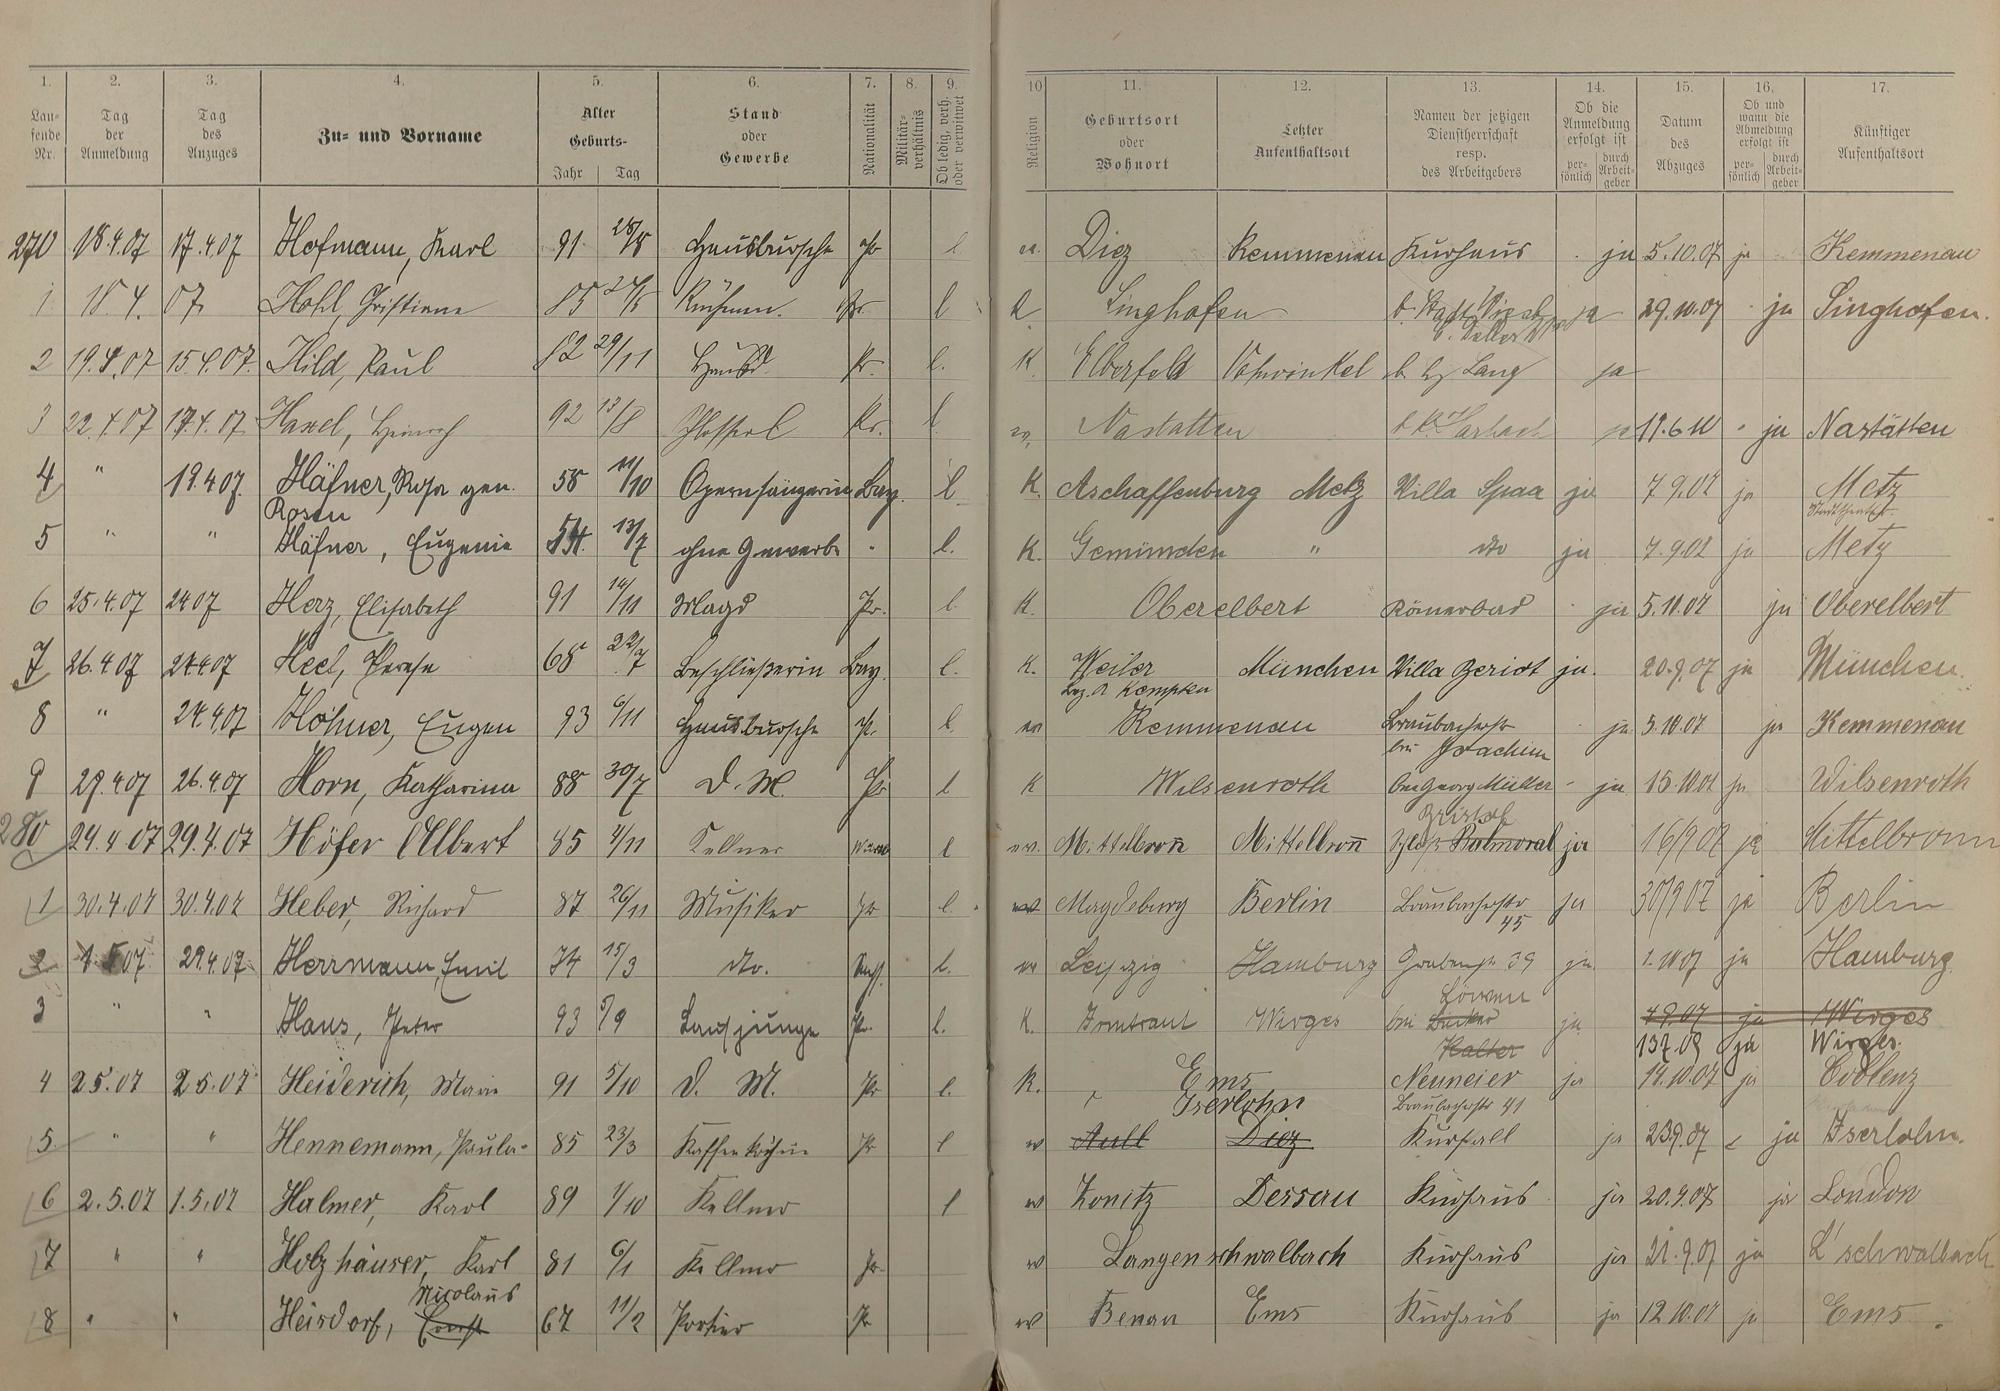 1. 2. 3. 4. 5. 6. 7. 8. 9. 10 11. 12. 13. 14. 15. 16. 17.
Lau-fende Nr. Tag der Anmeldung Tag des Anzuges Zu- und Vorname Alter Geburts- Jahr Tag Stand oder Gewerbe Nationalität Militär-verhältnis Ob ledig, verh. oder verwitwet Religion Geburtsort oder Wohnort Letzter Aufenthaltsort Namen der jetzigen Dienstherrschaft resp. des Arbeitgebers Ob die Anmeldung erfolgt ist per-sönlich durch Arbeit-geber Datum des Abzuges Ob und wann die Abmeldung erfolgt ist per-sönlich durch Arbeit-geber Künftiger Aufenthaltsort
270 18.4.07 17.4.07 Hofmann, Karl 91 28/8 Hausbursche Pr l ev. Diez Kemmenau Kurhaus ja 5.10.07 ja Kemmenau
1 18.4.07 Hohl, Christiane 85 Pr. l K Singhofen ja 29.10.07 ja Singhofen.
2 19.4.07 15.4.07 Hild, Paul 82 29/11 Hausd. Pr. l. K. Elberfeld Vohwinkel b. Lang ja
3 22.4.07 17.4.07 Hexel, Heinrich 92 13/8 Pr. l. ev. Nastätten ja Nastätten
4 " 19.4.07 Häfner, Rosa gen. Rosen 58 11/10 Opernsängerin Bay. l K. Aschaffenburg Metz Villa Spaa ja 7.9.07 ja Metz Stadttheater.
5 " " Häfner, Eugenie 54. 13/7 ohne Gewerbe " l. K. Gemünden " dto ja 7.9.07 ja Metz
6 25.4.07 Herz, Elisabeth 91 14/11 Magd Pr. l. K. Oberelbert Römerbad ja 5.10.07 ja Oberelbert
7 26.4.07 24.4.07 Heel, Therese 68 22/7 Beschließerin Bay. l. K. Weiler Bez. A Kempten München Villa Beriot ja. 20.9.07 ja München.
8 " 24.4.07 Höhner, Eugen 93 6/11 Hausbursche Pr. l. ev Kemmenau Braubacherstr bei Joachim ja 3.10.07 ja Kemmenau
9 27.4.07 26.4.07 Horn, Katharina 88 30/7 D. M. Pr l K Wilsenroth bei Georg Müller ja 15.10.07 ja Wilsenroth
280 29.4.07 29.4.07 Höfer Albert 85 4/11 Kellner l ev. Mittelbronn Mittelbronn Bristol Balmoral ja 16/9 07 ja Mittelbronn
1 30.4.07 30.4.07 Heber, Richard 87 26/11 Musiker Pr l. ev Magdeburg Berlin Braubacherstr 45 ja 30/9 07 ja Berlin
2 1.5.07 29.4.07 Herrmann, Emil 74 15/3 dto. l. ev Leipzig Hamburg Grabenstr 39 ja 1.10.07 ja Hamburg.
3 " " Hans, Peter 93 5/9 Laufjunge Pr. l. K. Irmtraut Wirges bei Löwen ja 4.9.07 ja Wirges
ja Wirges.
4 2.5.07 2.5.07 Heiderich, Marie 91 5/10 D. M. Pr l. K. Ems Neumeier Braubacherstr 41 ja 14.10.07 ja Coblenz
5 " " Hennemann, Paula 85 23/3 Kaffeeköchin Pr l ev Aull Diez Iserlohn Kursall ja 23.9.07 ja Iserlohn.
6 2.5.07 1.5.07 Halmer, Karl 89 1/10 Kellner l ev Zonitz Dessau Kurhaus ja 20.9.07 ja London
7 " " Holzhäuser, Karl 81 6/1 Kellner Pr ev Langenschwalbach Kurhaus ja 21.9.07 ja L'schwalbach
8 " " Heisdorf, Ernst Nicolaus 67 11/2 Portier Pr ev Benau Ems Kurhaus ja 12.10.07 ja Ems.